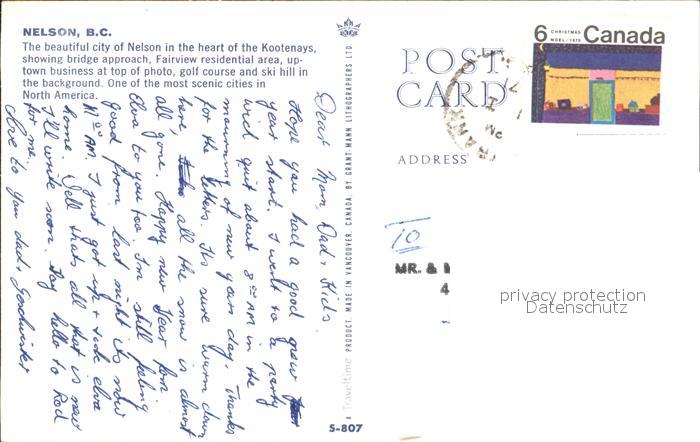 NELSON, B.C.
The beautiful city of Nelson in the heart of the Kootenays,
showing bridge approach, Fairview residential area, up-
town business at top of photo, golf course and ski hill in
the background. One of the most scenic cities in
North America.
Dear Mum, Dad & Kids.
Hope you had a good
year start. I went to a party
wich quit about 8 00 AM in the
mourning of new years day. Thanks
for the letters. Its sure warm down
here, all the snow is almost
all gone. Happy new Year from
Elva to you too Im still feeling
good from last night its now
11 00 AM. I just got up & took elva
home. Well thats all that is new
I'll write soon. Say hello to Rod
for me.
Love to you dad &
A Traveltime PRODUCT MADE IN VANCOUVER, CANADA, BY GRANT-MANN LITHOGRAPHERS LTD.
S-807
POST
CARD
ADDRESS
6 CHRISTMAS NOËL · 1970 Canada
PM
TO
MR. &
4
privacy protection
Datenschutz